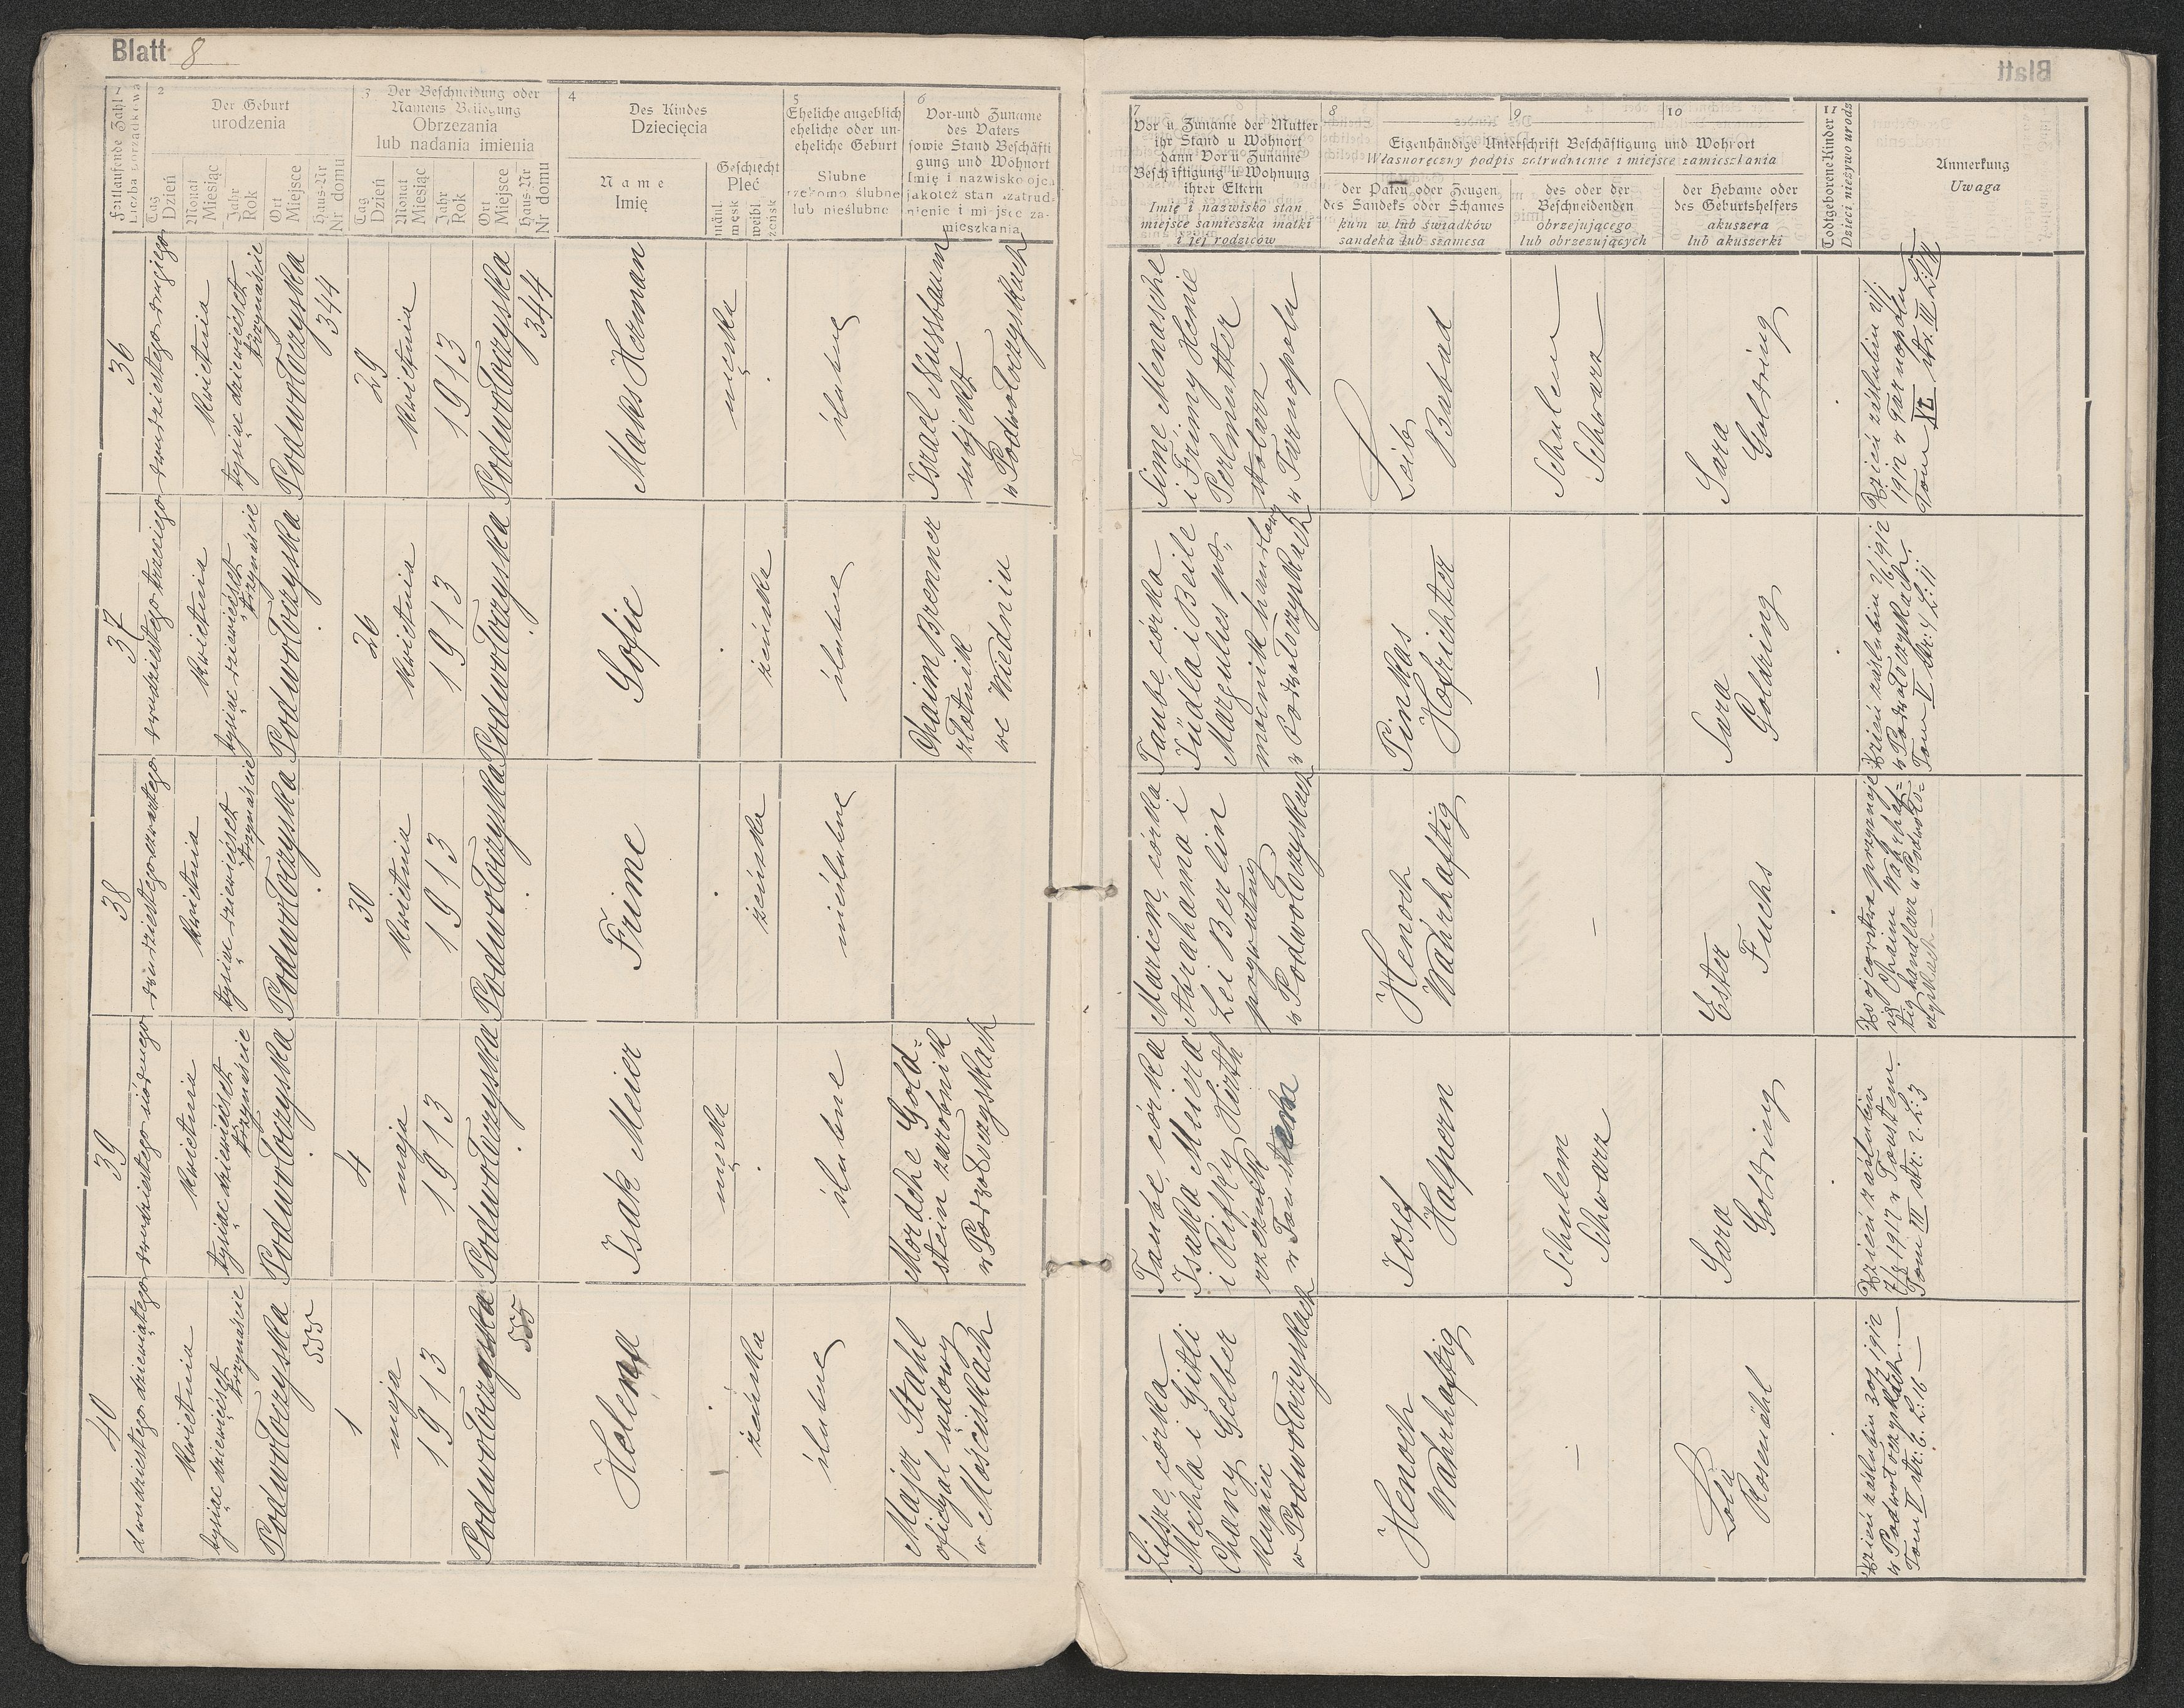 Blatt 8
1
Fortlaufende Zahl
Liczba porządkowa
2
Der Geburt
urodzenia
Tag
Dzień
Monat
Miesiąc
Jahr
Rok
Ort
Miejsce
Haus-Nr
Nr domu
3
Der Beschneidung oder
Namens Beilegung
Obrzezania
lub nadania imienia
Tag
Dzień
Monat
Miesiąc
Jahr
Rok
Ort
Miejsce
Haus-Nr
Nr domu
4
Des Kindes
Dziecięcia
Name
Imię
Geschlecht
Płeć
männl.
męsk
weibl.
żeńsk
5
Eheliche angeblich
eheliche oder un-
eheliche Geburt
Slubne
rzekomo ślubne
lub nieślubne
6
Vor-und Zuname
des Vaters
sowie Stand Beschäfti
gung und Wohnort
Imię i nazwisko ojca
jakoteż stan zatrud-
nienie i miejsce za-
mieszkania
36
dwudziestego drugiego
kwietnia
tysiąc dziewięćset
trzynaście
Podwołoczyska
344
29
kwietnia
1913
Podwołoczyska
344
Maks Herman
męska
ślubne
Israel Nussbaum
subjekt
w Podwołoczyskach
37
dwudziestego trzeciego
kwietnia
tysiąc dziewięćset
trzynaście
Podwołoczyska
26
kwietnia
1913
Podwołoczyska
Sofie
żeńska
ślubne
Chaim Brenner
złotnik
we Wiedniu
38
dwudziestego czwartego
kwietnia
tysiąc dziewięćset
trzynaście
Podwołoczyska
30
kwietnia
1913
Podwołoczyska
Frime
żeńska
nieślubne
39
dwudziestego siódmego
kwietnia
tysiąc dziewięćset
trzynaście
Podwołoczyska
4
maja
1913
Podwołoczyska
Isak Meier
męska
ślubne
Mordche Gold=
stein zarobnik
w Podwołoczyskach
40
dwudziestego dziewiątego
kwietnia
tysiąc dziewięćset
trzynaście
Podwołoczyska
555
1
maja
1913
Podwołoczyska
555
Helena
żeńska
ślubne
Majer Stahl
oficyał sądowy
w Mościskach
Blatt
7
Vor u. Zuname der Mutter
ihr Stand u Wohnort
dann Vor u Zuname
Beschäftigung u Wohnung
ihrer Eltern
Imię i nazwisko stan
miejsce zamieszka matki
i jej rodziców
8
9
10
Eigenhändige Unterschrift Beschäftigung und Wohnort
Własnoręczny podpis zatrudnienie i miejsce zamieszkania
der Paten oder Zeugen
des Sandeks oder Schames
kum w lub świadków
sandeka lub szamesa
des oder der
Beschneidenden
obrzejującego
lub obrzezujących
der Hebame oder
des Geburtshelfers
akuszera
lub akuszerki
11
Todtgeborene Kinder
Dzieci nieżywo urodz
Annerkung
Uwaga
Sime Menasche
i Frimy Henie
Perlmutter
stolarz
w Tarnopolu
Leib
Barbad
Schulem
Schwarz
Sara
Goldring
1912 w Tarnopolu
Taube córka
Judla i Beile
Margulies po„
mocnik handlowy
w Podwołoczyskach
Pinkas
Hofrichter
—
Sara
Goldring
w Podwołoczyskach.
Tom V str: 4 L: 11
Mariem, córka
Abrahama i
Lei Berlin
prywatny
w Podwołoczyskach
Henoch
Wahrhaftig
—
Ester
Fuchs
Do ojcostwa przyznaje
się Chaim Wahrhaf=
tig handlarz w Podwoło=
czyskach —
Taube, córka
Isaka Meiera
i Rifky Hirth
rzeźnik
w Toustem
Josef
Halpern
Schulem
Schwarz
Sara
Goldring
Dzień zaślubin
w Toustem.
Tom III str: 2 L: 3
córka
Mechla i Gitli
Chany Gelber
kupiec
w Podwołoczyskach
Henoch
Wahrhaftig
—
Rosenöhl
w Podwołoczyskach. —
Tom V str: 6. L: 16 —